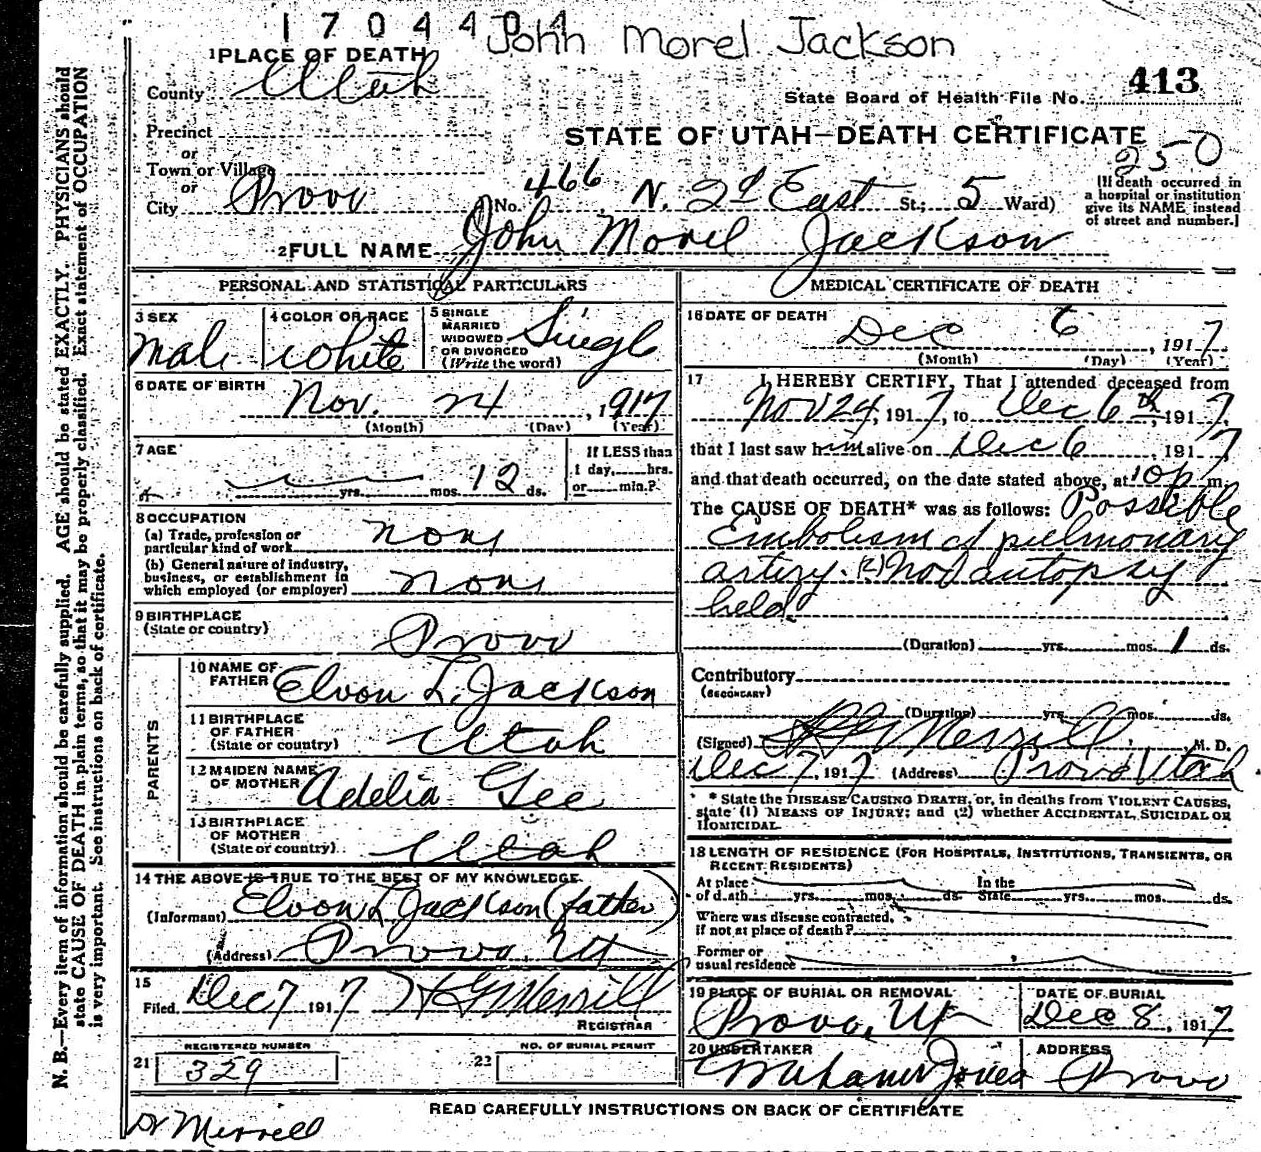 1704404
John Morel Jackson
1 PLACE OF DEATH
County Utah
413
State Board of Health File No.
Precinct
or
STATE OF UTAH—DEATH CERTIFICATE
250
Town or Village
or
City Provo
(No. 466 N. 2d East St.; 5 Ward)
[If death occurred in
a hospital or institution
give its NAME instead
of street and number.]
2 FULL NAME John Morel Jackson
PERSONAL AND STATISTICAL PARTICULARS
3 SEX
Male
4 COLOR OR RACE
White
5 SINGLE
MARRIED
WIDOWED
OR DIVORCED
(Write the word)
Single
6 DATE OF BIRTH
Nov. 24, 1917
(Month) (Day) (Year)
7 AGE
yrs. mos. 12 ds.
If LESS than
1 day, hrs.
or min.?
8 OCCUPATION
(a) Trade, profession or
particular kind of work none
(b) General nature of industry,
business, or establishment in
which employed (or employer) none
9 BIRTHPLACE
(State or country) Provo
PARENTS
10 NAME OF
FATHER Elvon L. Jackson
11 BIRTHPLACE
OF FATHER
(State or country) Utah
12 MAIDEN NAME
OF MOTHER Adelia Gee
13 BIRTHPLACE
OF MOTHER
(State or country) Utah
14 THE ABOVE IS TRUE TO THE BEST OF MY KNOWLEDGE
(Informant) Elvon L. Jackson (father)
(Address) Provo, Ut
15
Filed Dec 7 1917 H G Merrill
REGISTRAR
REGISTERED NUMBER
21 329
NO. OF BURIAL PERMIT
23
MEDICAL CERTIFICATE OF DEATH
16 DATE OF DEATH
Dec 6, 1917
(Month) (Day) (Year)
17 I HEREBY CERTIFY, That I attended deceased from
Nov 24, 1917, to Dec 6th, 1917,
that I last saw him alive on Dec 6 1917
and that death occurred, on the date stated above, at 10 p m.
The CAUSE OF DEATH* was as follows: Possible
Embolism of pulmonary
artery. (?) No autopsy
held
(Duration) yrs. mos. 1 ds.
Contributory
(SECONDARY)
(Duration) yrs. mos. ds.
(Signed) H G Merrill, M. D.
Dec 7, 1917 (Address) Provo Utah
* State the DISEASE CAUSING DEATH, or, in deaths from VIOLENT CAUSES,
state (1) MEANS OF INJURY; and (2) whether ACCIDENTAL, SUICIDAL OR
HOMICIDAL
18 LENGTH OF RESIDENCE (FOR HOSPITALS, INSTITUTIONS, TRANSIENTS, OR
RECENT RESIDENTS)
At place
of death yrs. mos. ds.
In the
State yrs. mos. ds.
Where was disease contracted,
if not at place of death?
Former or
usual residence
19 PLACE OF BURIAL OR REMOVAL
Provo, Ut
DATE OF BURIAL
Dec 8, 1917
20 UNDERTAKER
Jones
ADDRESS
Provo
READ CAREFULLY INSTRUCTIONS ON BACK OF CERTIFICATE
Dr Merrell
N. B.—Every item of information should be carefully supplied. AGE should be stated EXACTLY. PHYSICIANS should
state CAUSE OF DEATH in plain terms, so that it may be properly classified. Exact statement of OCCUPATION
is very important. See instructions on back of certificate.